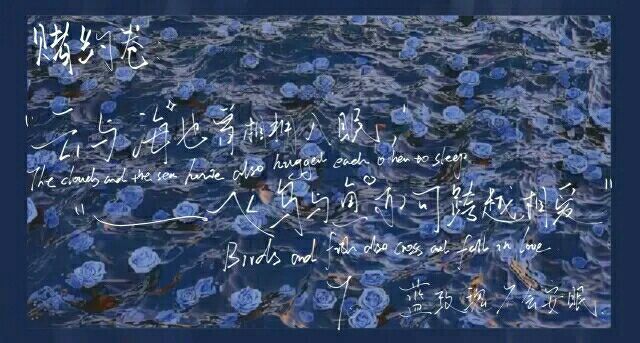 赌约卷
"云与海也曾相拥入眠"
The clouds and the sea have also hugged each other to sleep
"飞鸟与鱼亦可跨越相爱"
Birds and fish also cross and fall in love
蓝玫瑰不会安眠.